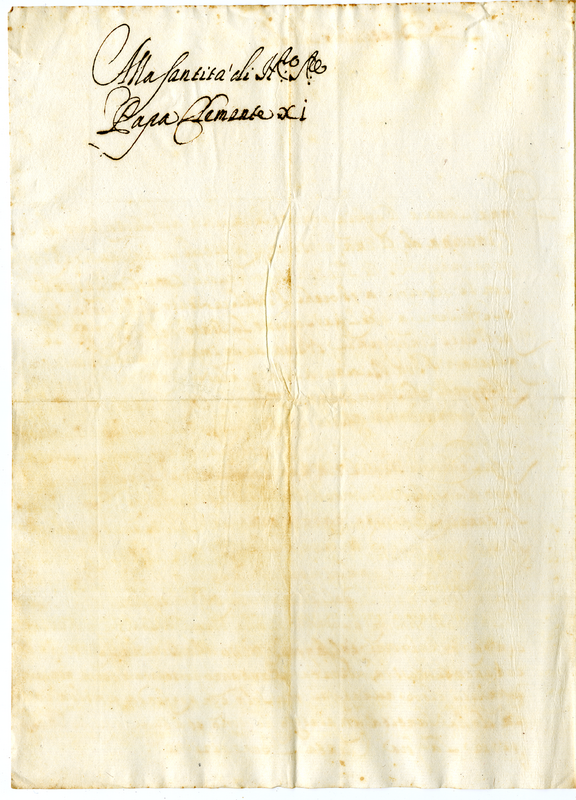 Alla Santità di N.ro S.re
Papa Clemente xi